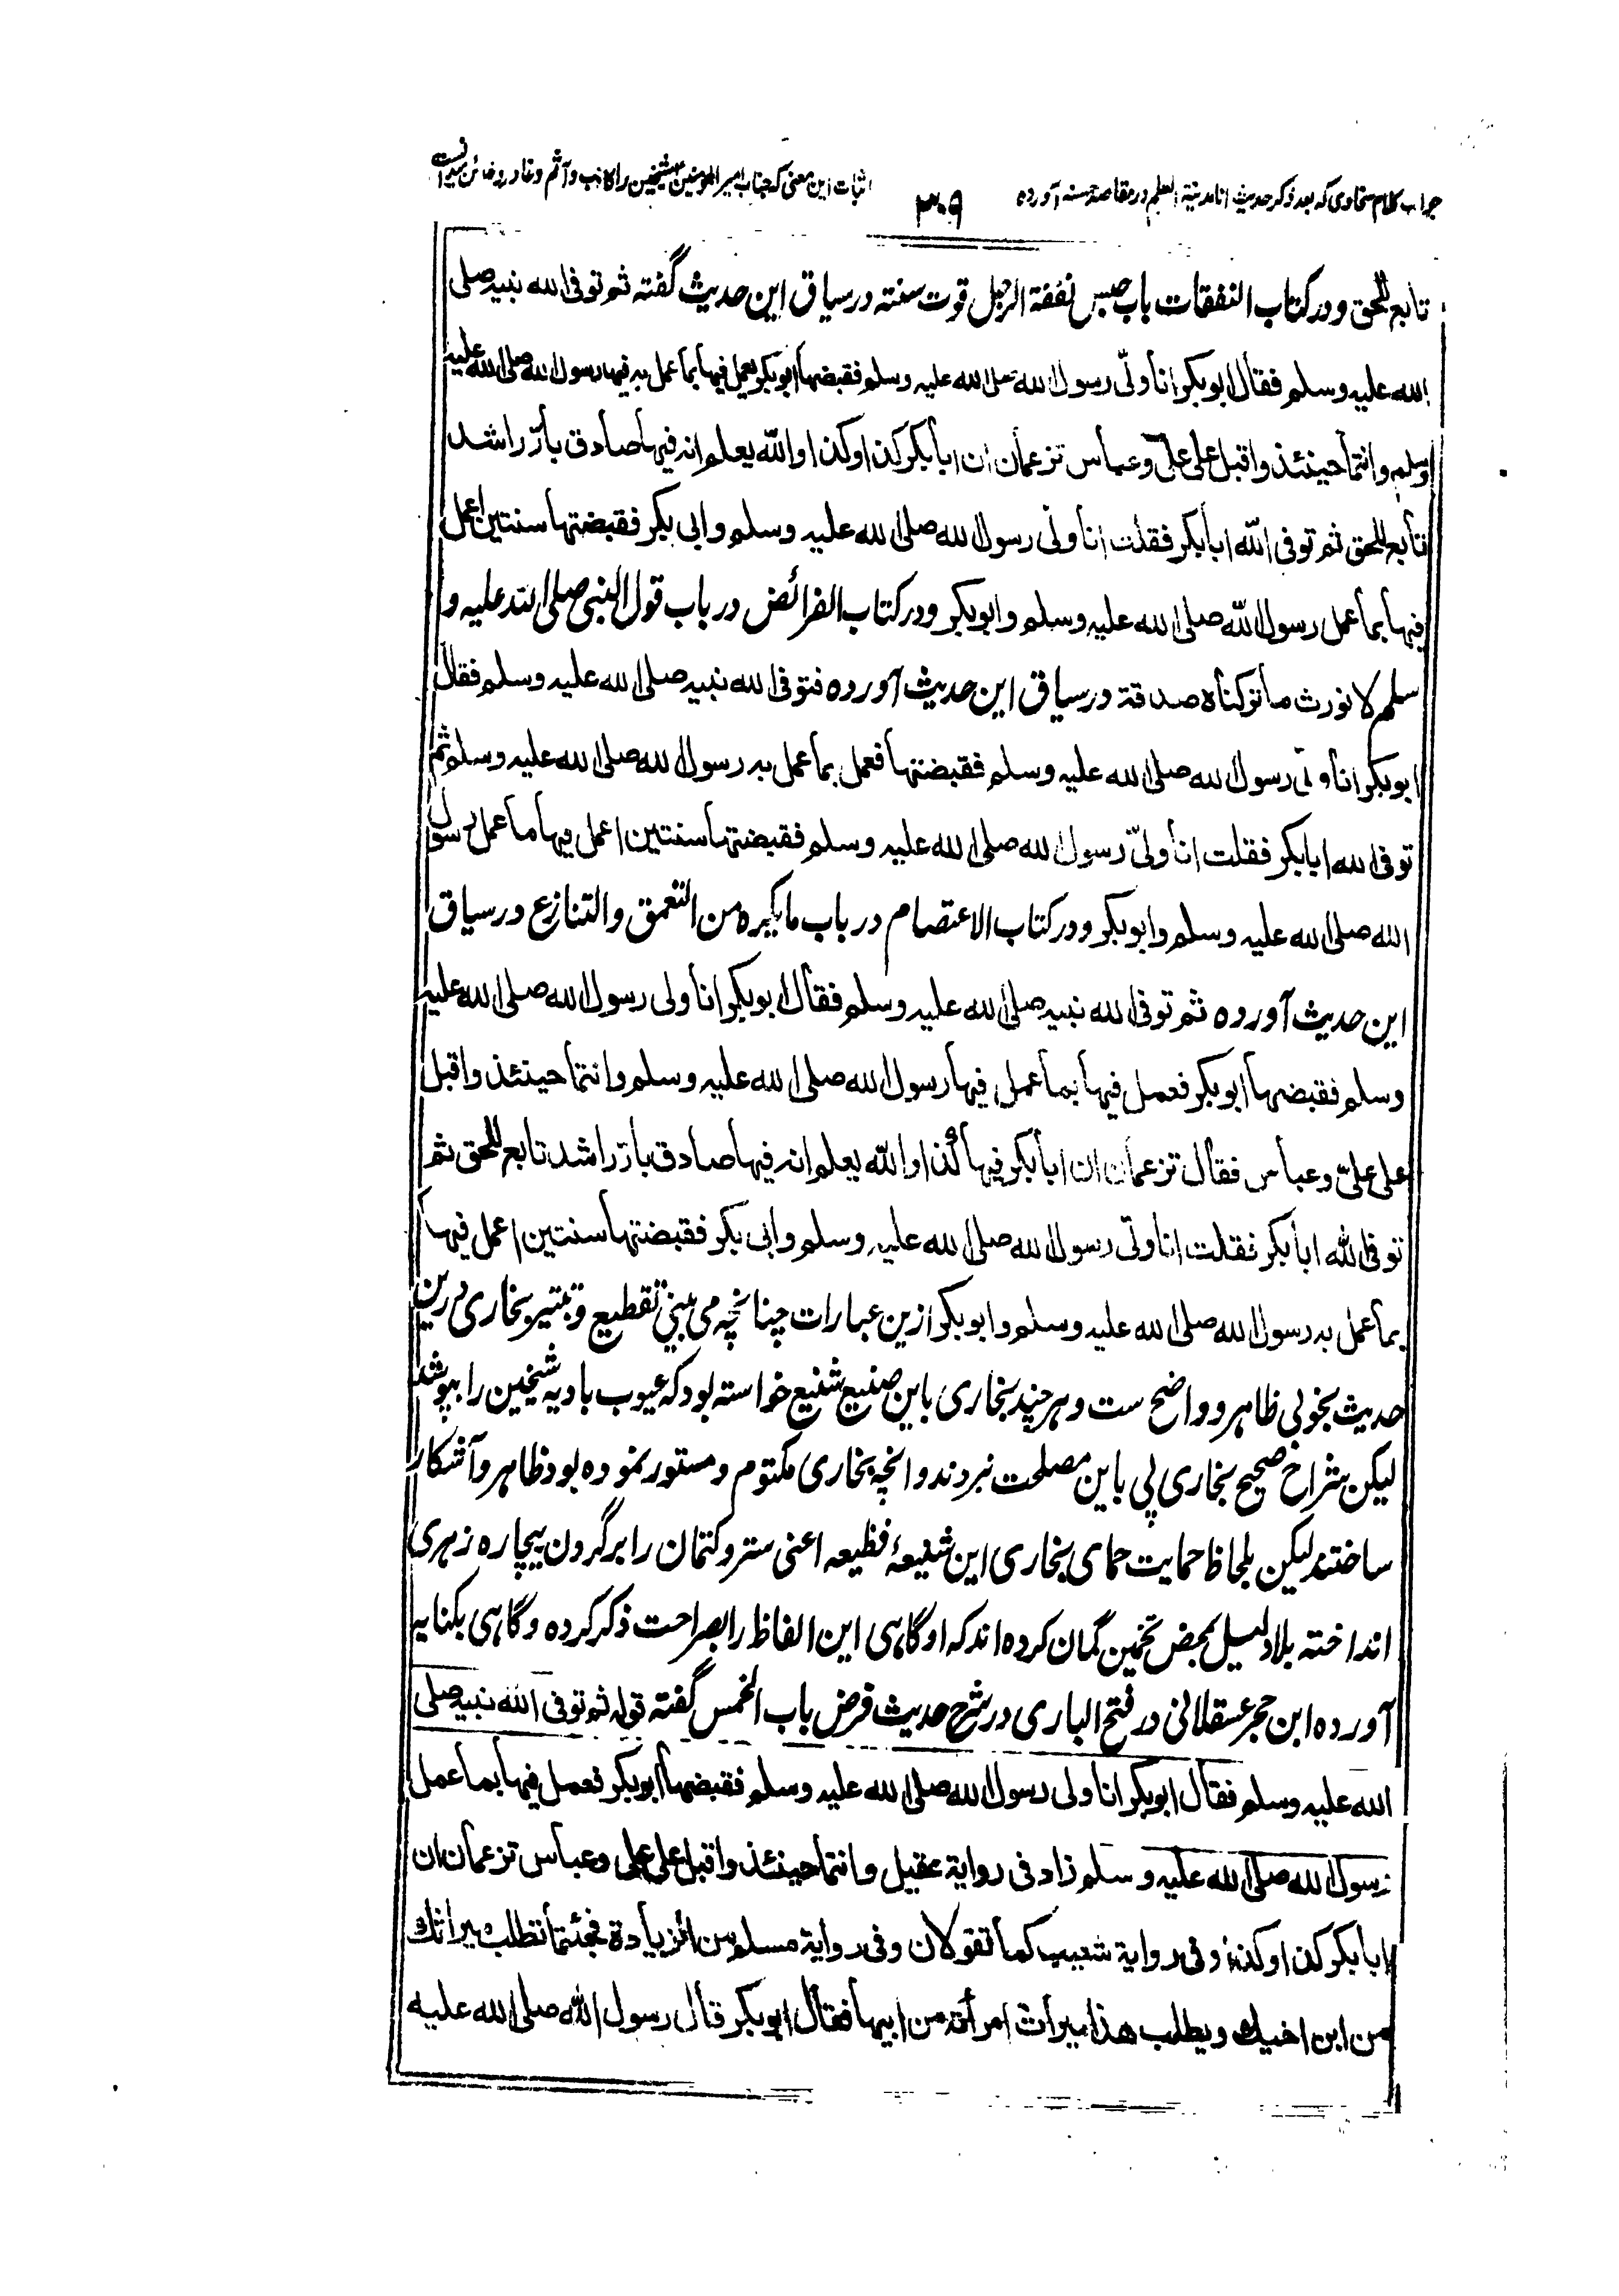 جواب کلام سخاوی که بعد ذکر حدیث انا مدینة العلم در مقاصد حسنه آورده
۳۰۹
اثبات این معنی که جناب امیر المومنین شیخین را کاذب و آثم و غادر و خائن میدانست
تابع للحق و در کتاب النفقات باب حبس نفقة الرجل قوت سنته در سیاق این حدیث گفته ثم توفی الله نبیه صلی
الله علیه وسلم فقال ابو بکر انا ولیّ رسول الله صلی الله علیه وسلم فقبضها ابو بکر یعمل فیها بما عمل به فیها رسول الله صلی الله علیه
وسلم وانتما حینئذ واقبل علی علیّ وعباس تزعمان ان ابا بکر کذا وکذا والله یعلم انه فیها صادق بارّ راشد
تابع للحق ثم توفی الله ابا بکر فقلت انا ولی رسول الله صلی الله علیه وسلم وابی بکر فقبضتها سنتین اعمل
فیها بما عمل رسول الله صلی الله علیه وسلم وابو بکر و در کتاب الفرائض در باب قول النبی صلی الله علیه و
سلم لا نورث ما ترکناه صدقة در سیاق این حدیث آورده فتوفی الله نبیه صلی الله علیه وسلم فقال
ابو بکر انا ولیّ رسول الله صلی الله علیه وسلم فقبضتها فعمل بما عمل به رسول الله صلی الله علیه وسلم ثم
توفی الله ابا بکر فقلت انا ولیّ رسول الله صلی الله علیه وسلم فقبضتها سنتین اعمل فیها ما عمل رسول
الله صلی الله علیه وسلم وابو بکر و در کتاب الاعتصام در باب ما یکره من التعمق والتنازع در سیاق
این حدیث آورده ثم توفی الله نبیه صلی الله علیه وسلم فقال ابو بکر انا ولی رسول الله صلی الله علیه
وسلم فقبضها ابو بکر فعمل فیها بما عمل فیها رسول الله صلی الله علیه وسلم وانتما حینئذ واقبل
علی علیّ وعباس فقال تزعمان ان ابا بکر فیها کذا والله یعلم انه فیها صادق بارّ راشد تابع للحق ثم
توفی الله ابا بکر فقلت انا ولیّ رسول الله صلی الله علیه وسلم وابی بکر فقبضتها سنتین اعمل فیها
بما عمل به رسول الله صلی الله علیه وسلم وابو بکر ازین عبارات چنانچه می بینی تقطیع و تبتیر بخاری درین
حدیث بخوبی ظاهر و واضح ست و هر چند بخاری باین صنیع شنیع خواسته بود که عیوب بادیه شیخین را بپوشد
لیکن شراح صحیح بخاری پی باین مصلحت نبردند و انچه بخاری مکتوم و مستور نموده بود ظاهر و آشکار
ساختند لیکن بلحاظ حمایت حمای بخاری این شنیعهٔ فظیعه اعنی ستر و کتمان را بر گردن بیچاره زهری
انداخته بلا دلیل بمحض تخمین گمان کرده اند که او گاهی این الفاظ را بصراحت ذکر کرده و گاهی بکنایه
آورده ابن حجر عسقلانی در فتح الباری در شرح حدیث فرض باب الخمس گفته قوله ثم توفی الله نبیه صلی
الله علیه وسلم فقال ابو بکر انا ولی رسول الله صلی الله علیه وسلم فقبضها ابو بکر فعمل فیها بما عمل
رسول الله صلی الله علیه وسلم زاد فی روایة عقیل وانتما حینئذ واقبل علی علی وعباس تزعمان ان
ابا بکر کذا وکذا وفی روایة شعیب کما تقولان وفی روایة مسلم من الزیادة فجئتما تطلب میراثک
من ابن اخیک ویطلب هذا میراث امرأته من ابیها فقال ابو بکر قال رسول الله صلی الله علیه